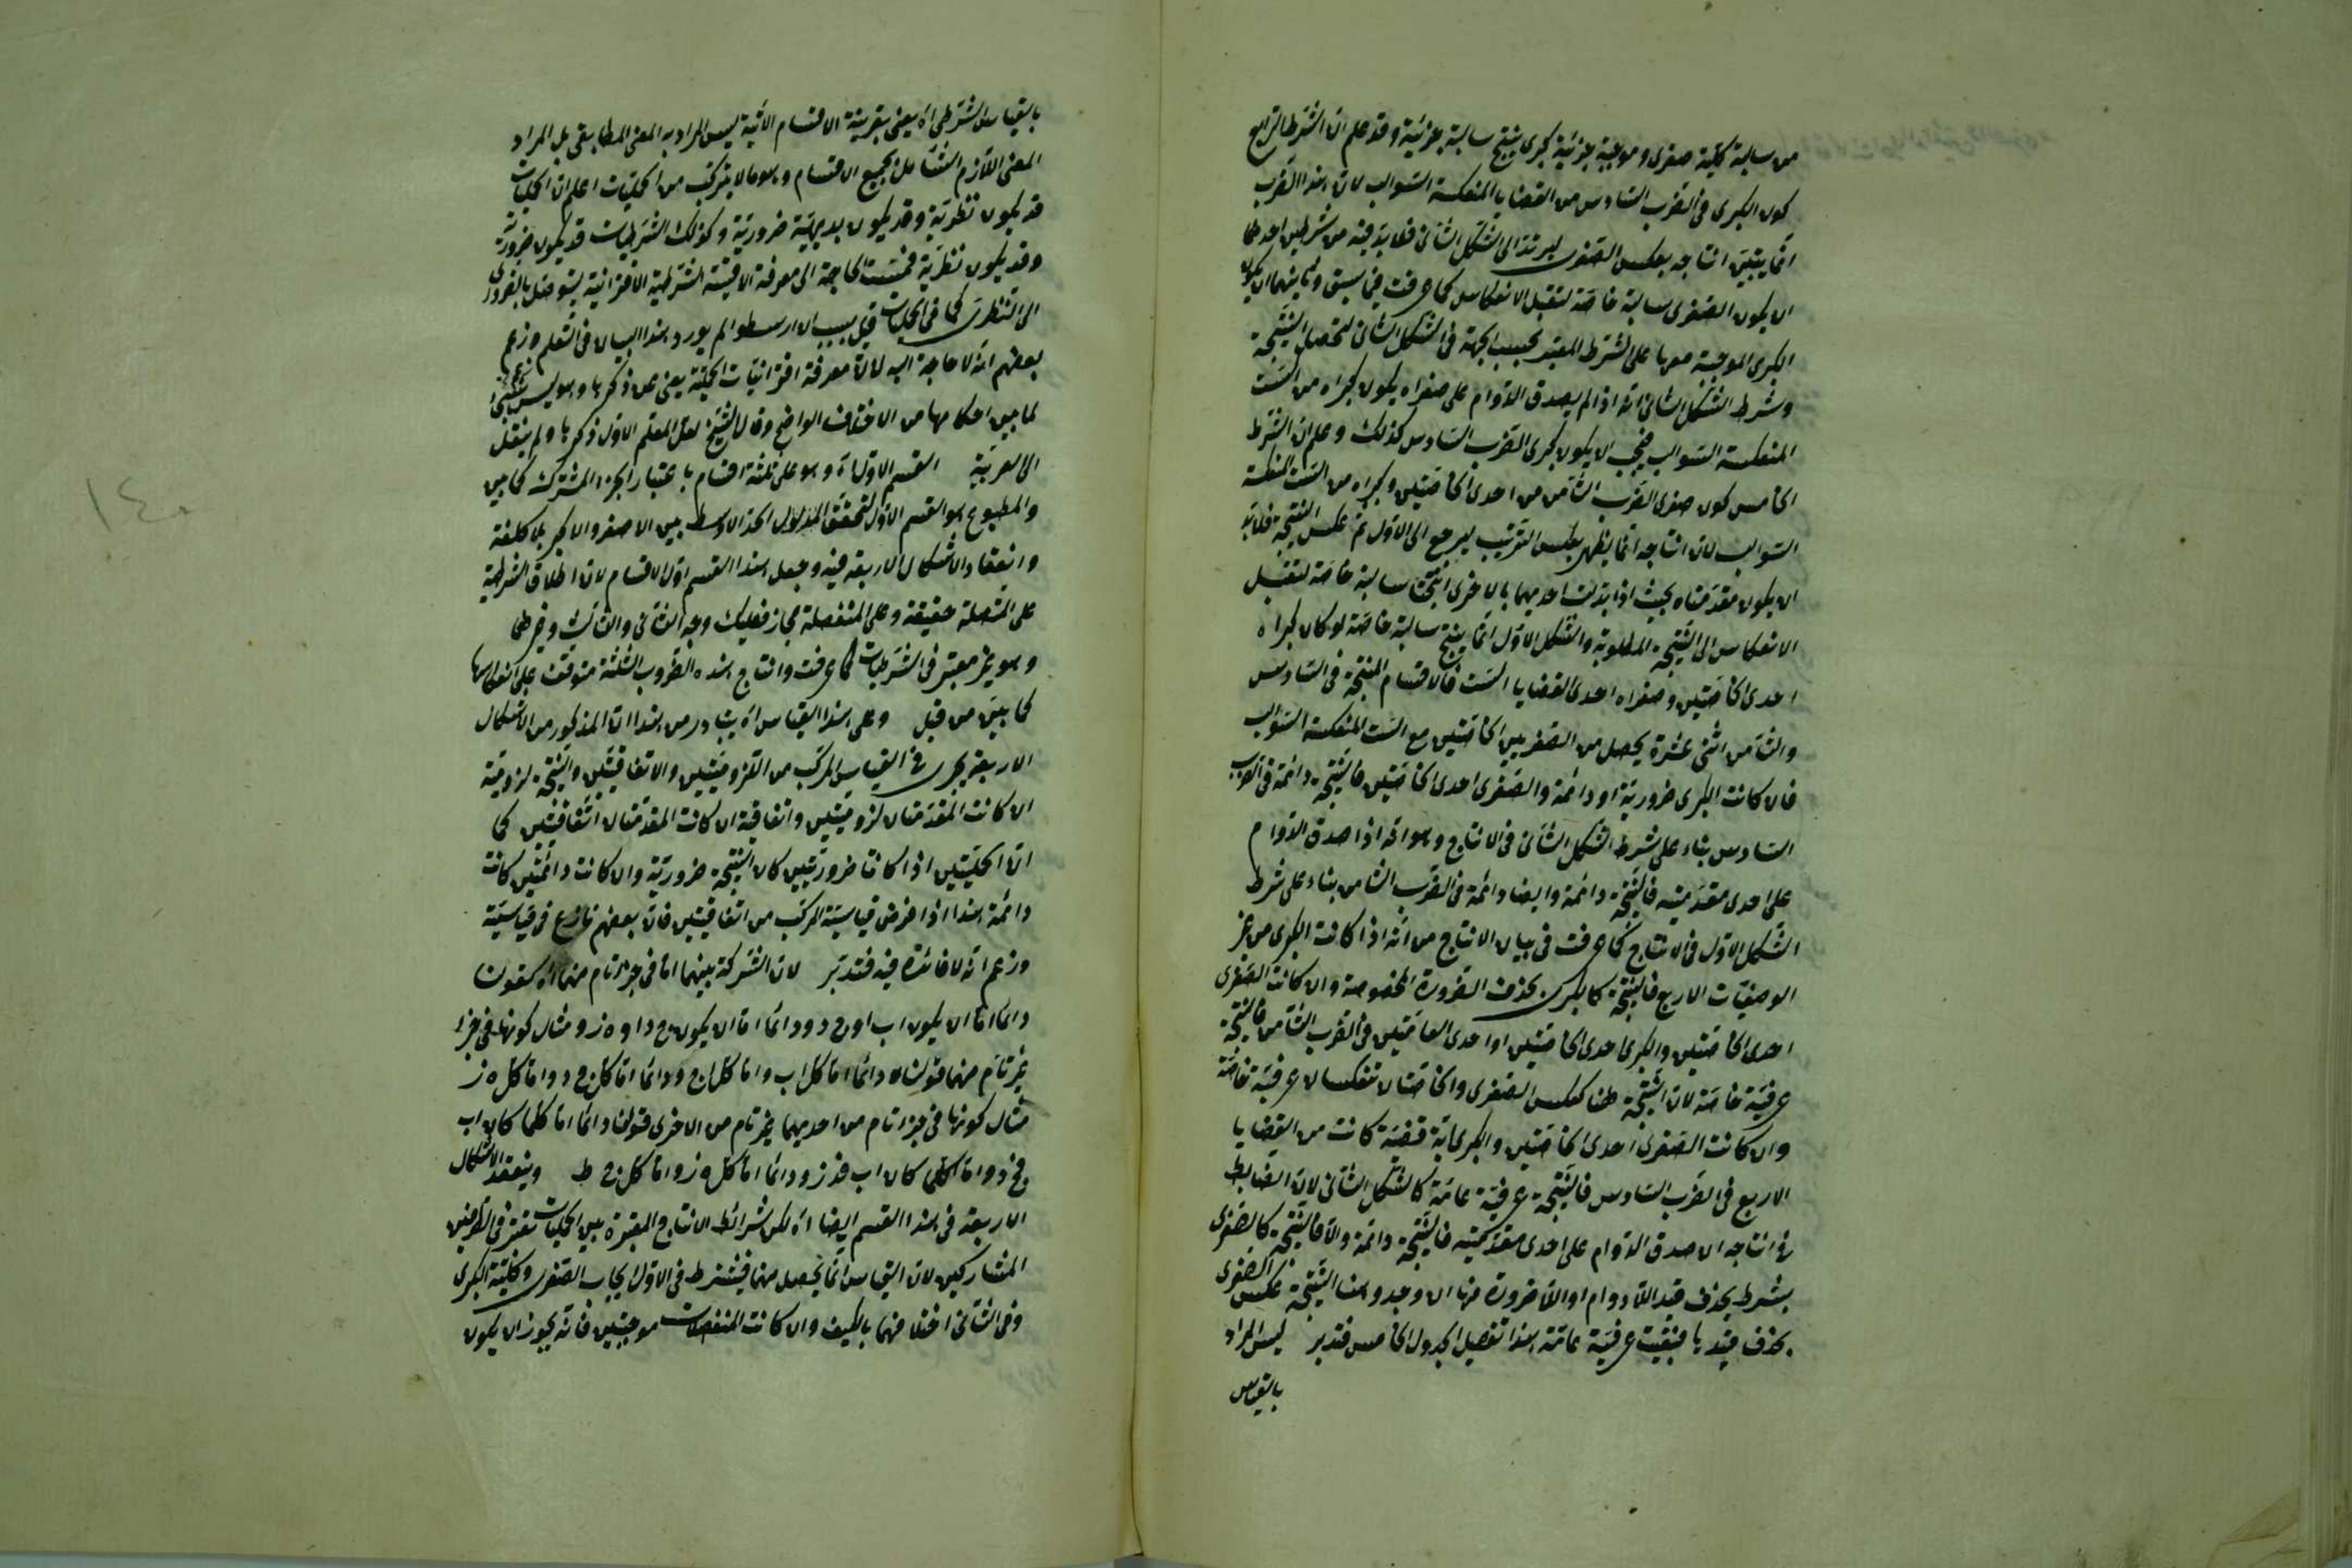 من سالبة كلية صغرى وموجبة جزئية كبرى ينتج سالبة جزئية وقد علم ان الشرط الرابع
كون الكبرى فى الضرب السادس من القضايا المنعكسة السوالب لان هذا الضرب
انما يتبين انتاجه بعكس الصغرى ليرتد الى الشكل الثانى فلا بد فيه من شرطين احدهما
ان يكون الصغرى سالبة خاصة لتقبل الانعكاس كما عرفت فيما سبق وثانيهما ان يكون
الكبرى الموجبة معها على الشرط المعتبر بحسب الجهة فى الشكل الثانى لتحصل النتيجة
وشرط الشكل الثانى انه اذا لم يصدق الدوام على صغراه يكون كبراه من الست
المنعكسة السوالب فيجب ان يكون كبرى الضرب السادس كذلك وعلم ان الشرط
الخامس كون صغرى الضرب الثامن من احدى الخاصتين وكبراه من الست المنعكسة
السوالب لان انتاجه انما يظهر بعكس الترتيب ليرجع الى الاول ثم عكس النتيجة فلا بد
ان يكون مقدمتاه بحيث اذا بدلت احديهما بالاخرى انتجتا سالبة خاصة لتقبل
الانعكاس الى النتيجة المطلوبة والشكل الاول انما ينتج سالبة خاصة لو كان كبراه
احدى الخاصتين وصغراه احدى القضايا الست فالاقسام المنتجة فى السادس
والثامن اثنى عشرة يحصل من الصغريين الخاصتين مع الست المنعكسة السوالب
فان كانت الكبرى ضرورية او دائمة والصغرى احدى الخاصتين فالنتيجة دائمة فى الضرب
السادس بناء على شرط الشكل الثانى فى الانتاج وهو انه اذا صدق الدوام
على احدى مقدمتيه فالنتيجة دائمة وايضا دائمة فى الضرب الثامن بناء على شرط
الشكل الاول فى الانتاج كما عرفت فى بيان الانتاج من انه اذا كانت الكبرى من غير
الوصفيات الاربع فالنتيجة كالكبرى بحذف الضرورة المخصوصة وان كانت الصغرى
احدى الخاصتين والكبرى احدى الخاصتين او احدى العامتين فى الضرب الثامن فالنتيجة
عرفية خاصة لان النتيجة هنا كعكس الصغرى والخاصتان تنعكسان عرفية خاصة
وان كانت الصغرى احدى الخاصتين والكبرى اية قضية كانت من القضايا
الاربع فى الضرب السادس فالنتيجة عرفية عامة كالشكل الثانى لان الضابط
فى انتاجه ان صدق الدوام على احدى مقدمتيه فالنتيجة دائمة والا فالنتيجة كالصغرى
بشرط بحذف قيد اللادوام او اللاضرورة منها ان وجد وهنا النتيجة عكس الصغرى
بحذف قيدها فبقيت عرفية عامة هذا تفصيل الجدول الخامس فتدبر ليس المراد
بالقياس
بالقياس الشرطى اه يعنى بقرينة الاقسام الآتية ليس المراد به المعنى المطابقى بل المراد
المعنى اللازم الشامل لجميع الاقسام وهو ما لا يتركب من الحمليات اعلم ان الحمليات
قد يكون نظرية وقد يكون بديهية ضرورية وكذلك الشرطيات قد يكون ضرورية
وقد يكون نظرية فمست الحاجة الى معرفة الاقيسة الشرطية الاقترانية يتوصل بالضرورى
الى النظرى كما فى الحمليات قيل بسبب ان ارسطو لم يورد هذا البيان فى التعلم وزعم
بعضهم انه لا حاجة اليه لان معرفة اقترانيات الحملية يغنى عن ذكرها وهو ليس بشئ
لما بين احكامها من الاختلاف الواضح وقال الشيخ لعل المعلم الاول ذكرها ولم ينقل
الى العربية القسم الاول اه وهو على ثلثة اقسام باعتبار الجزء المشترك كما بين
والمطبوع هو القسم الاول لتحقق الحد الاوسط بين الاصغر والاكبر بلا كلفة
وانعقاد الاشكال الاربعة فيه وجعل هذا القسم اول الاقسام لان اطلاق الشرطية
على المتصلة حقيقة وعلى المنفصلة مجاز فعليك وجه الثانى والثالث وغيرهما
وهو غير معتبر فى الشرطيات كما عرفت وانتاج هذه الضروب الثلثة متوقف على انعكاسها
كما بين من قبل وعلى هذا القياس اه يتبادر من هذا ان المذكور من الاشكال
الاربعة يجرى فى القياس المركب من اللزوميتين والاتفاقيتين والنتيجة لزومية
ان كانت المقدمتان لزوميتين واتفاقية ان كانت المقدمتان اتفاقيتين كما
ان الحمليتين اذا كانتا ضروريتين كان النتيجة ضرورية وان كانت دائمتين كانت
دائمة هذا اذا فرض قياسية المركب من اتفاقيتين فان بعضهم نازع فى قياسيته
وزعم انه لا فائدة فيه فتدبر لان الشركة بينهما اما فى جزء تام منهما اه كقولنا
دائما اما ان يكون اب او ج د ودائما اما ان يكون ج د او ه ز ومثال كونها فى جزء
غير تام منهما قولنا دائما اما كل اب واما كل ج د ودائما اما كل ج د واما كل ه ز
مثال كونها فى جزء تام من احديهما غير تام من الاخرى قولنا دائما اما كلما كان اب
فج د واما كلما كان اب فه ز ودائما اما كل ه ز واما كل ج ط وينعقد الاشكال
الاربعة فى هذا القسم ايضا اه لكن شرائط الانتاج المعتبرة بين الحمليات تعتبر فى الجزئين
المشاركين لان القياس انما يحصل منهما فيشترط فى الاول ايجاب الصغرى وكلية الكبرى
وفى الثانى اختلافهما بالكيف وان كانت المنفصلات موجبتين فانه يجوز ان يكون
١٤٠